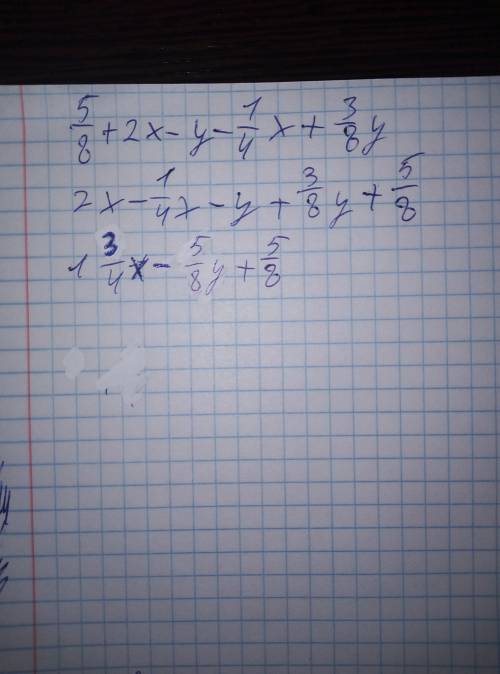 5/8 + 2x - y - 1/4 x + 3/8 y
2x - 1/4 x - y + 3/8 y + 5/8
1 3/4 x - 5/8 y + 5/8